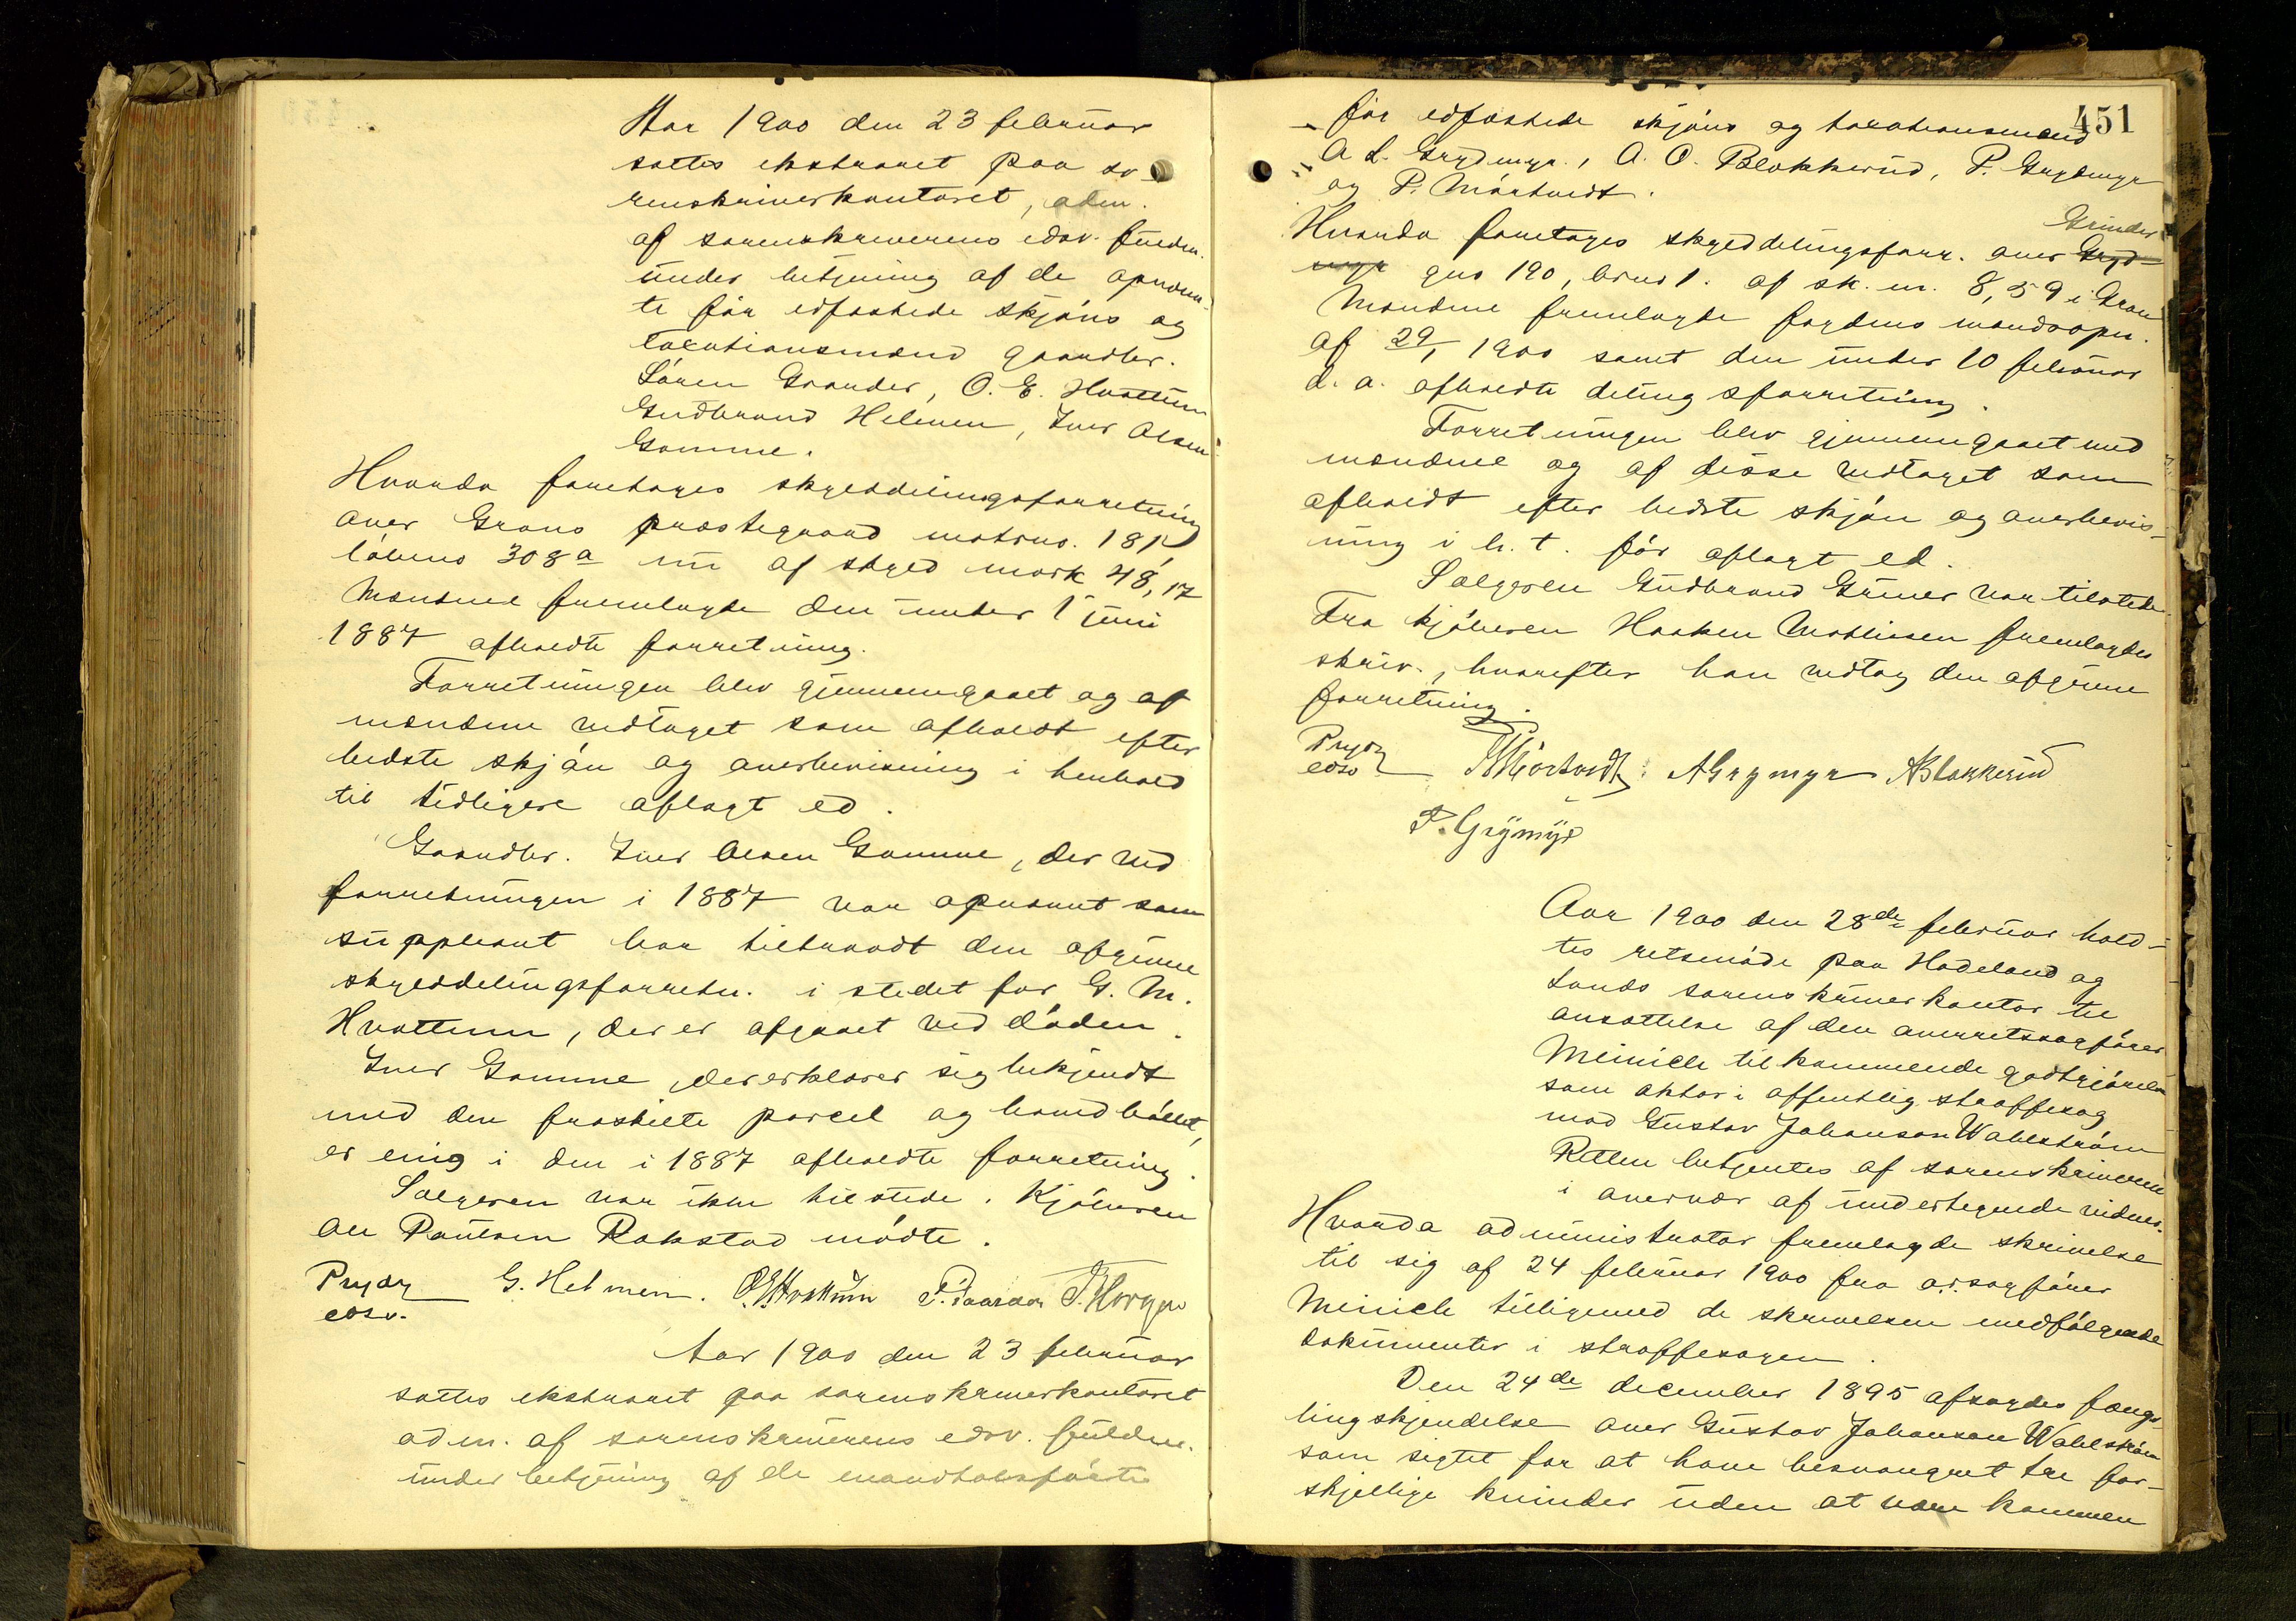 Aar 1900 den 23 februar
sattes ekstraret paa so-
renskriverkontoret, adm.
af sorenskriverens edsv. fuldm.
under betjening af de opnævn-
te før edfæstede skjøns og
taxationsmænd gaardbr.
Søren Granden, O. E. Hvattum
Gudbrand Helmen, Iver Olsen
Gamme.
Hvorda foretages skylddelingsforretning
over Grans præstegaard matrno. 181,
løbeno 308a nu af skyld mark 48,17
Mændene fremlagde den under 1 juni
1887 afholdte forretning.
Forretningen blev gjennemgaaet og af
mændene vedtaget som afholdt efter
bedste skjøn og overbevisning i henhold
til tidligere aflagt ed.
Gaardbr. Iver Olsen Gamme, der ved
forretningen i 1887 var opnævnt som
suppleant har tiltraadt den afgivne
skylddelingsforretn. i stedet for G. M.
Hvattum, der er afgaaet ved døden.
Iver Gamme, der erklærer sig bekjendt
med den fraskilte parcel og hovedbølet,
er enig i den i 1887 afholdte forretning.
Sælgeren var ikke tilstede. Kjøberen
Ole Paulsen Rakstad mødte.
Prydz G. Helmen. O.E.Hvattum
edsv.
Aar 1900 den 23 februar
sattes ekstraret paa sorenskriverkontoret
adm. af sorenskriverens edsv. fuldm.
under betjening af de mandtalsførte
451
- før edfæstede skjøns og taxationsmænd
A L. Grydmyr., A. O. Blokkerud, P. Grydmyr
og P. Mørtvedt.
Grinder
Hvorda foretages skylddelingsforr. over Gryd-
myr gno 190, brno 1. af sk. m. 8,59 i Gran
Mændene fremlagde fogdens mandsopn.
af 29/1 1900 samt den under 10 februar
d. a. afholdte delingsforretning.
Forretningen blev gjennemgaaet med
mændene og af disse vedtaget som
afholdt efter bedste skjøn og overbevis-
ning i h. t. før aflagt ed.
Sælgeren Gudbrand Griner var tilstede.
Fra kjøberen Haaken Mathisen fremlagdes
skriv., hvorefter han vedtog den afgivne
forretning.
Prydz P Mørtvedt. A Grymyr A Blakkerud
edsv
P. Grymyr
Aar 1900 den 28de februar hold-
tes retsmøde paa Hadeland og
Lands sorenskriverkontor til
ansættelse af den overretssagfører
Meinich tilkommende godtgjørelse
som aktor i offentlig straffesag
mod Gustav Johanson Wahlstrøm
Retten betjentes af sorenskriveren
i overvær af undertegnede vidner.
Hvorda administrator fremlagde skrivelse
til sig af 24 februar 1900 fra o.r.sagfører
Meinich tilligemed de skrivelsen medfølgende
dokumenter i straffesagen.
Den 24de december 1895 afsagdes fængs-
lingskjendelse over Gustav Johanson Wahlstrøm
som sigtet for at have besvangret tre for-
skjellige kvinder uden at være kommen